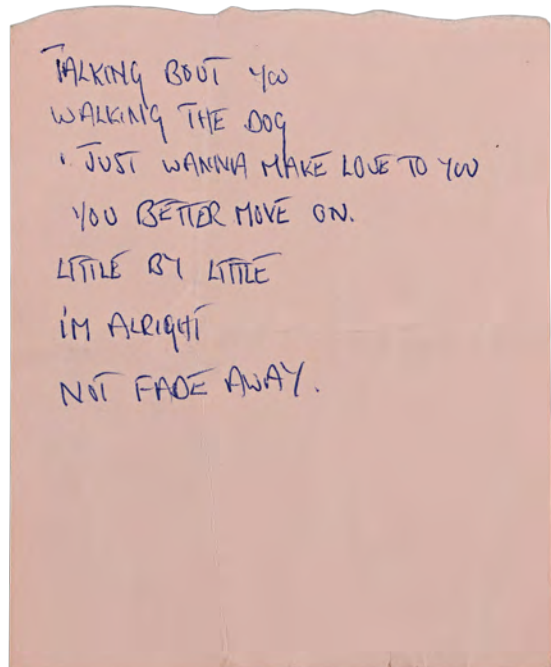 TALKING BOUT YOU
WALKING THE DOG
I JUST WANNA MAKE LOVE TO YOU
YOU BETTER MOVE ON.
LITTLE BY LITTLE
I'M ALRIGHT
NOT FADE AWAY.